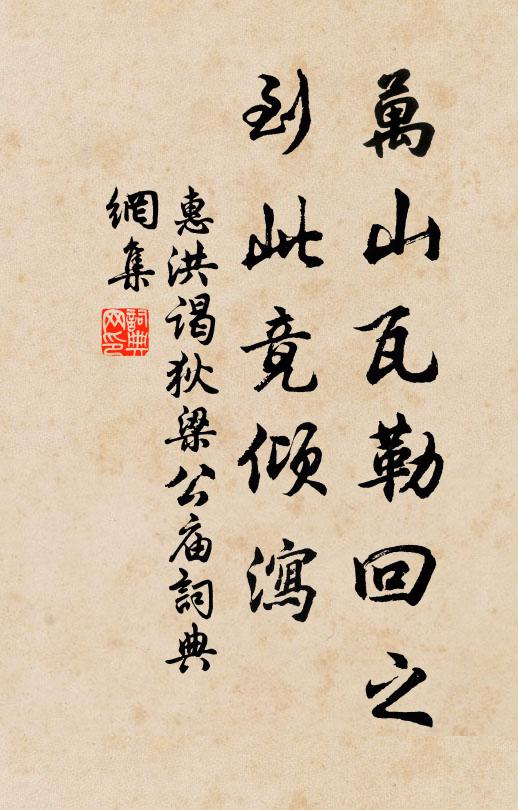 萬山瓦勒回之
到此竟傾瀉
惠洪謁狄梁公庙詞典
網集
詞典
网印